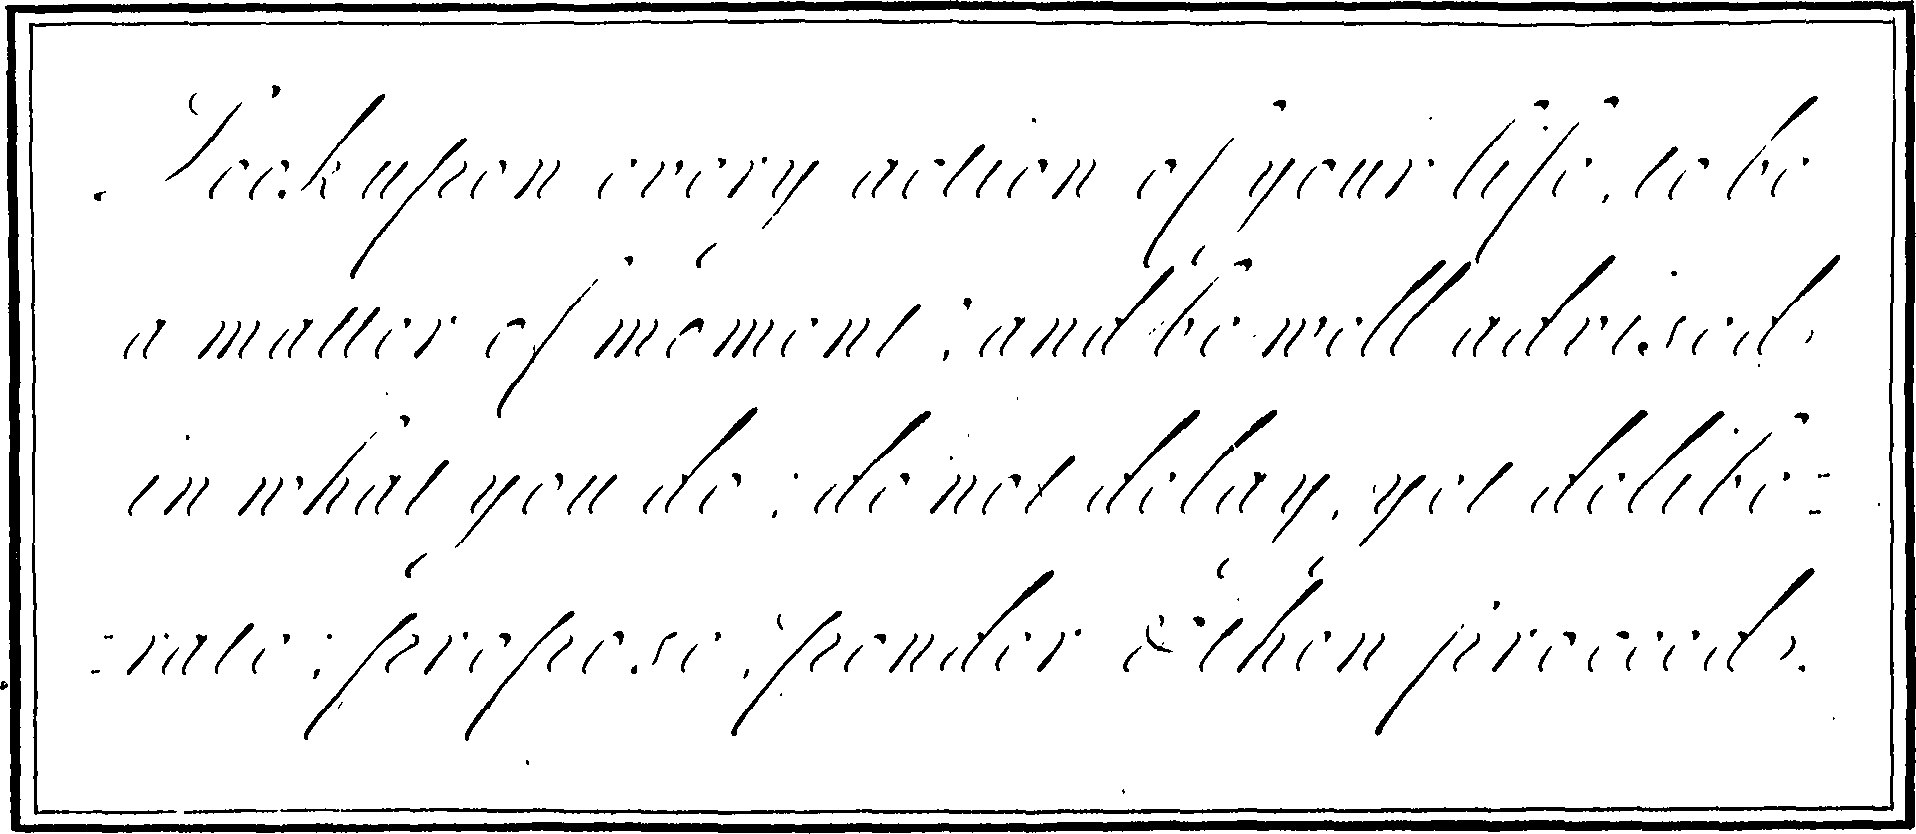 Look upon every action of your life, to be
a matter of moment; and be well advised
in what you do; do not delay, yet delibe=
=rate; propose, ponder & then proceed.